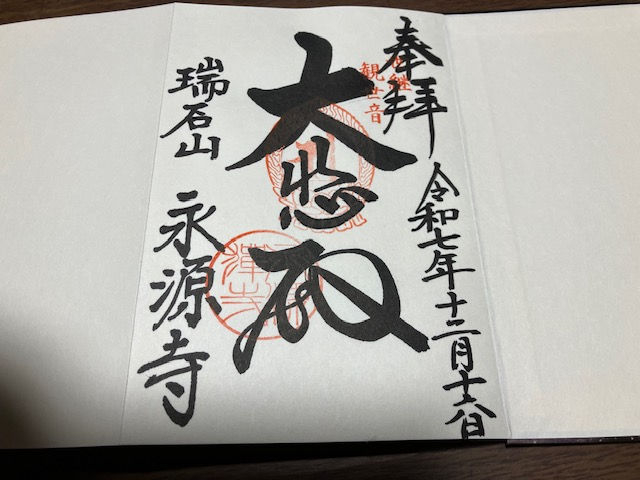 奉拝
世継
観世音
令和七年十二月十六日
大悲殿
瑞石山
永源寺